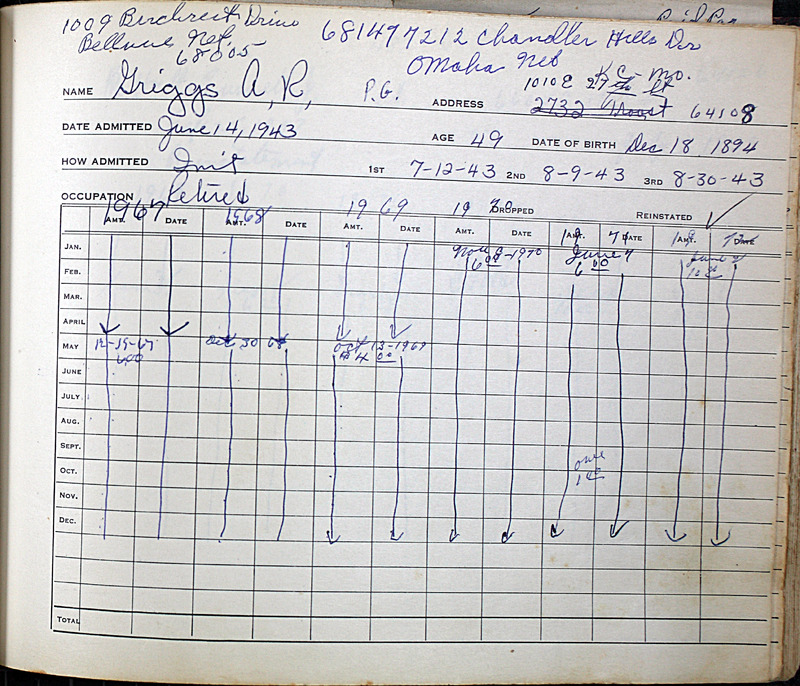 1009 Birchcrest Drive
Bellevue Neb.
68005
681497212 Chandler Hills Dr
Omaha Neb
K C - Mo.
1010 E 27th St
NAME Griggs A, R, P.G. ADDRESS 2732 Troost 64108
DATE ADMITTED June 14, 1943 AGE 49 DATE OF BIRTH Dec 18 1894
HOW ADMITTED Init 1ST 7-12-43 2ND 8-9-43 3RD 8-30-43
OCCUPATION Retired
DROPPED REINSTATED
1967 1968 1969 19 70 19 71 19 72
AMT. DATE AMT. DATE AMT. DATE AMT. DATE AMT. DATE AMT. DATE
JAN. Nov 9-1970 June 7
FEB. 6 00 6 00
MAR.
APRIL
MAY 12-15-67 Oct 30 68 Oct 13-1969
6.00 $4 00
JUNE
JULY
AUG.
SEPT.
OCT.
NOV.
DEC.
TOTAL